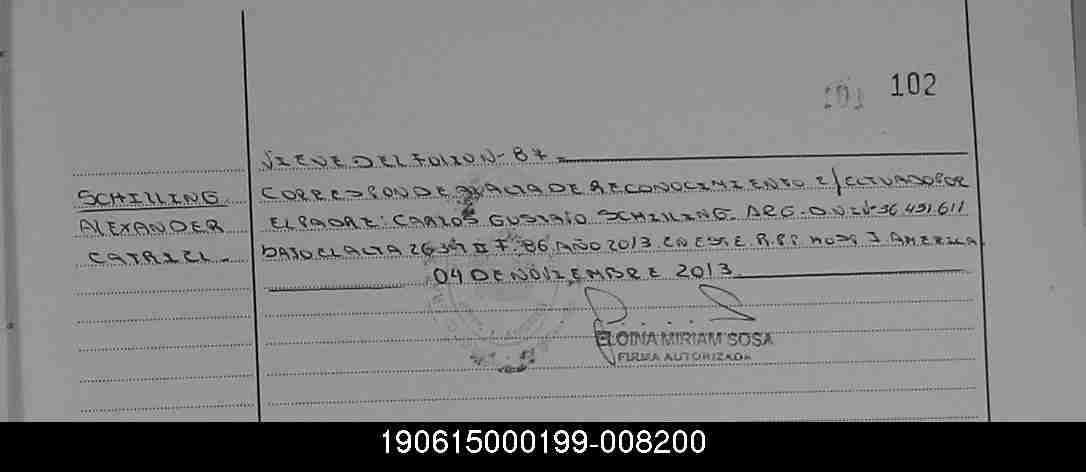 102
VIENE DEL FOLIO N- 87.
SCHILLING
ALEXANDER
CATRIEL.-
CORRESPONDE ACTA DE RECONOCIMIENTO EFECTUADO POR
EL PADRE: CARLOS GUSTAVO SCHILLING. ARG. 36.491.611
BAJO EL ACTA F: 86 AÑO 2013 EN ESTE
04 DE NOVIEMBRE 2013
ELOINA MIRIAM SOSA
FIRMA AUTORIZADA
190615000199-008200